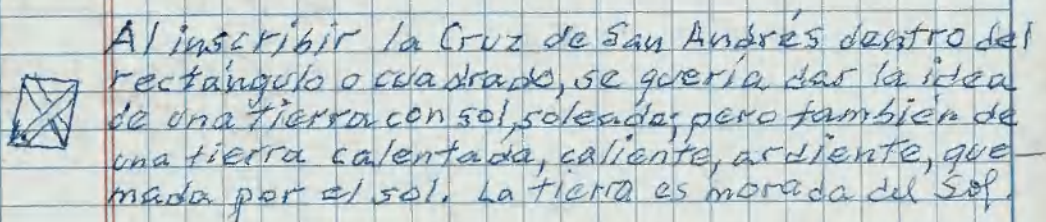 Al inscribir la Cruz de San Andrés dentro del
rectángulo o cuadrado, se quería dar la idea
de una tierra con sol, soleada; pero también de
una tierra calentada, caliente, ardiente, que-
mada por el sol. La tierra es morada del Sol.